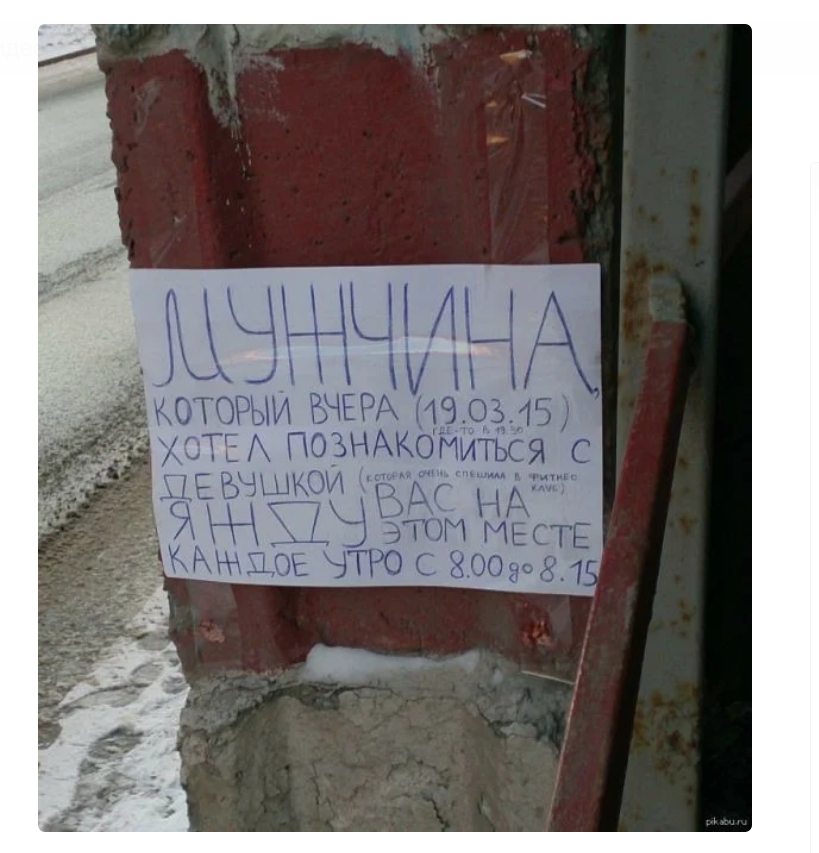 МУЖЧИНА,
КОТОРЫЙ ВЧЕРА (19.03.15)
ГДЕ-ТО В 19.30
ХОТЕЛ ПОЗНАКОМИТЬСЯ С
ДЕВУШКОЙ (КОТОРАЯ ОЧЕНЬ СПЕШИЛА В ФИТНЕС
КЛУБ)
Я ЖДУ ВАС НА
ЭТОМ МЕСТЕ
КАЖДОЕ УТРО С 8.00 до 8.15
pikabu.ru